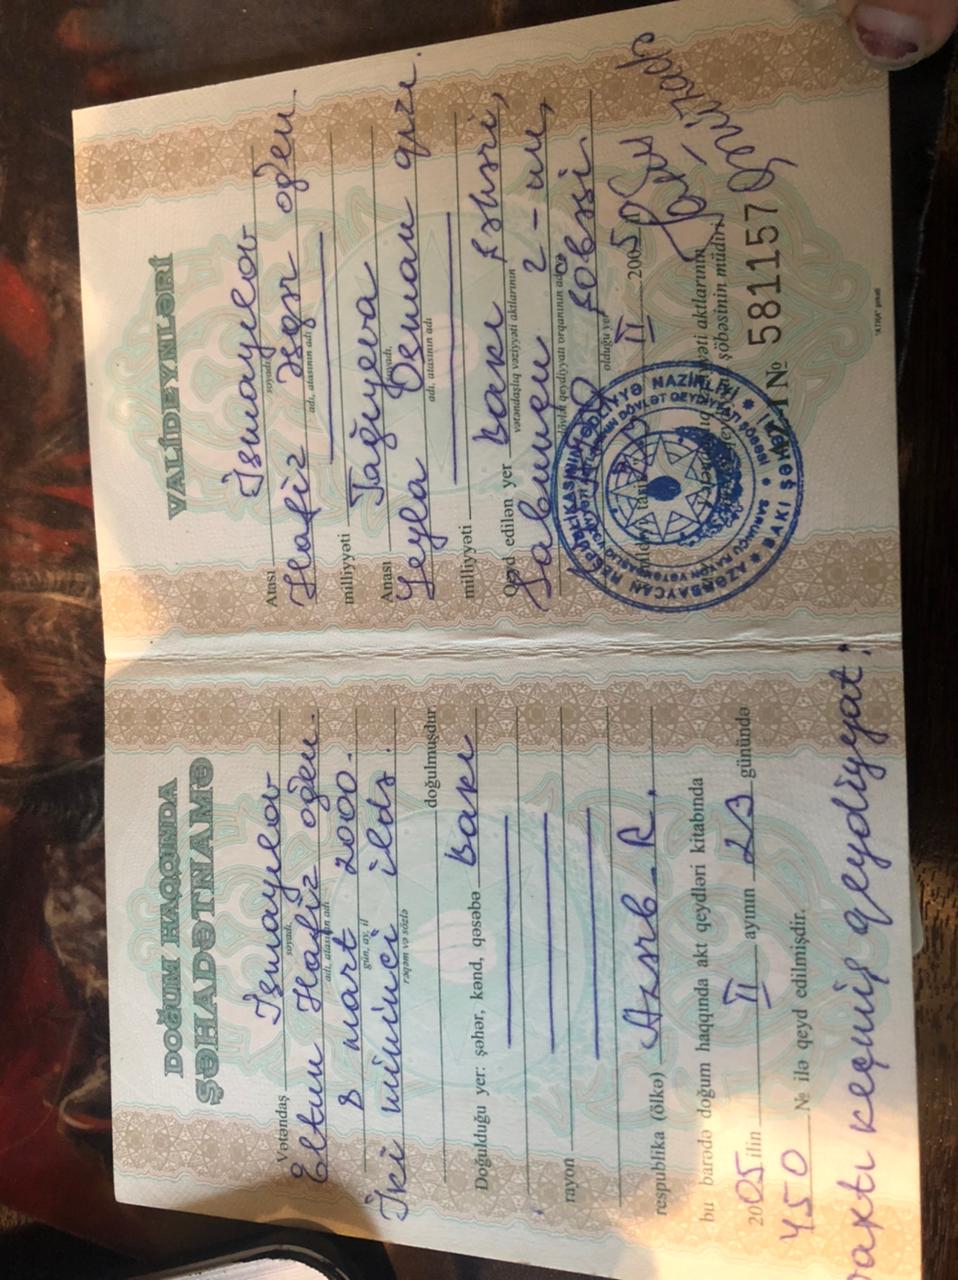 DOĞUM HAQQINDA
ŞƏHADƏTNAMƏ
Vətəndaş İsmayılov
soyadı,
Eltun Hafiz oğlu.
adı, atasının adı
8 mart 2000.
gün, ay, il
İki mininci ildə.
rəqəm və sözlə
doğulmuşdur.
Doğulduğu yer: şəhər, kənd, qəsəbə Bakı
rayon
respublika (ölkə) Azərb. R.
bu barədə doğum haqqında akt qeydləri kitabında
2005 ilin II ayının 23 günündə
450 № ilə qeyd edilmişdir.
vaxtı keçmiş qeydiyyat.
VALİDEYNLƏRİ
Atası İsmayılov
soyadı,
Hafiz
oğlu.
adı, atasının adı
milliyyəti
Anası Tağıyeva
soyadı,
Leyla
qızı
adı, atasının adı
milliyyəti
Qeyd edilən yer Bakı şəhəri,
vətəndaşlıq vəziyyəti aktlarının
2
dövlət qeydiyyatı orqanının adı və
şöbəsi.
olduğu yer
II 2005
şöbəsinin müdiri
№ 5811157
AZƏRBAYCAN RESPUBLİKASININ ƏDLİYYƏ NAZİRLİYİ
BAKI ŞƏHƏRİ